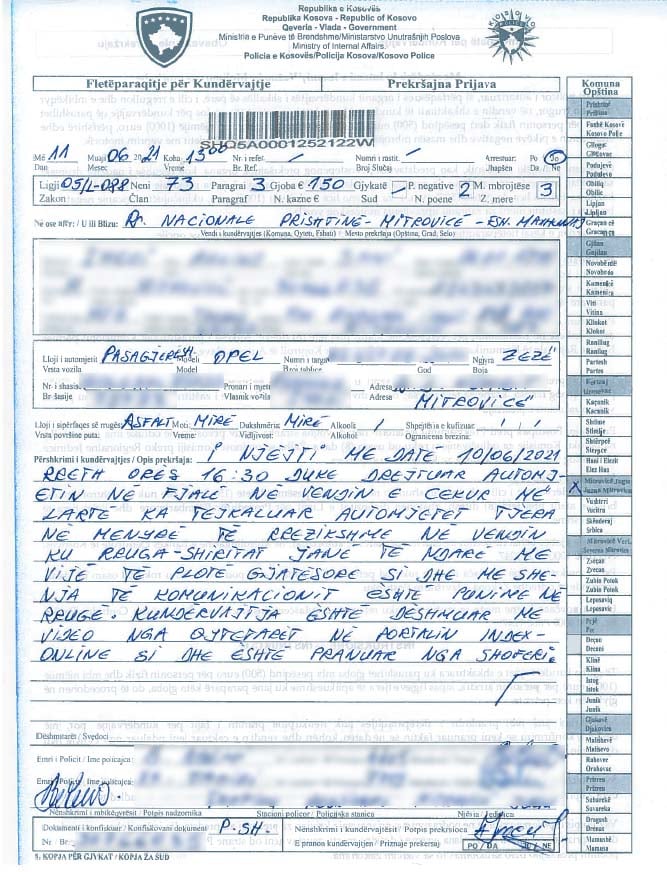 Republika e Kosovës
Republika Kosova - Republic of Kosovo
Qeveria - Vlada - Government
Ministria e Punëve të Brendshme/Ministarstvo Unutrašnjih Poslova
Ministry of Internal Affairs
Policia e Kosovës/Policija Kosova/Kosovo Police
Fletëparaqitje për Kundërvajtje Prekršajna Prijava
SHQ5A0001252122W
Më 11 Muaji 06 2021 Koha 13:00 Nr i ref. / Numri i rastit. / Arrestuar: Po Jo
Mesec Vreme Br. Ref. Broj Slučaj Uhapšen Da Ne
Ligji 05/L-088 Neni 73 Paragrai 3 Gjoba € 150 Gjykatë P. negative 2 M. mbrojtëse 3
Zakon Član Paragraf N. kazne € Sud N. poene Z. mere
Në ose afër / U ili Blizu: Rr. NACIONALE PRISHTINË - MITROVICË - FSH.
Vendi i kundërvajtjes (Komuna, Qyteti, Fshati) Mesto prekršaja (Opština, Grad, Selo)
Lloji i automjetit PASAGJERESH Modeli OPEL Numri i targa Ngjyra ZEZË
Vrsta vozila Model Broj tablice God Boja
Nr i shasis Pronari i mjeti Adresa
Br šasije Vlasnik vozila Adresa MITROVICË
Lloji i sipërfaqes së rrugës: ASFALT Moti: MIRË Dukshmëria: MIRË Alkooli / Shpejtësia e kufizuar: /
Vrsta površine puta: Vreme: Vidljivost: Alkohol Ograničena brzina:
Përshkrimi i kundërvajtjes / Opis prekršaja: I NJEJTI ME DATË 10/06/2021
RRETH ORËS 16:30 DUKE DREJTUAR AUTOMJ-
ETIN NË FJALË NË VENDIN E CEKUR MË
LARTË KA TEJKALUAR AUTOMJETET TJERA
NË MENYRË TË RREZIKSHME NË VENDIN
KU RRUGA-SHIRITAT JANË TË NDARË ME
VIJË TË PLOTË GJATËSORE SI DHE ME SHE-
NJA TË KOMUNIKACIONIT ËSHTË PUNIME NË
RRUGË. KUNDËRVAJTJA ËSHTË DËSHMUAR ME
VIDEO NGA QYTETARËT NË PORTALIN INDEX-
ONLINE SI DHE ËSHTË PRANUAR NGA SHOFERI.
Dëshmitarët / Svedoci
Emri i Policit / Ime policajca:
Emri i Policit / Ime policajca:
Nënshkrimi i mbikëqyrësit / Potpis nadzornika Stacioni policor / Policijska stanica Njësia / Jedinica
Dokumenti i konfiskuar / Konfiskovani dokument P.SH. Nënshkrimi i kundërvajtësit / Potpis prekršioca
Nr / Br: E pranon kundërvajtjen / Priznaje prekršaj PO / DA JO / NE
5. KOPJA PËR GJYKAT / KOPJA ZA SUD
Komuna
Opština
Prishtinë
Priština
Fushë Kosovë
Kosovo Polje
Gllogoc
Glogovac
Podujevë
Podujevo
Obiliq
Obilić
Lipjan
Lipljan
Graçanicë
Gračanica
Gjilan
Gnjilan
Novobërdë
Novobrdo
Kamenicë
Kamenica
Viti
Vitina
Kllokot
Klokot
Ranillug
Ranilug
Partesh
Parteš
Ferizaj
Uroševac
Kaçanik
Kačanik
Shtime
Štimlje
Shtërpcë
Štrpce
Hani i Elezit
Elez Han
X Mitrovicë Jugu
Južna Mitrovica
Vushtrri
Vučitrn
Skënderaj
Srbica
Mitrovicë Veri
Severna Mitrovica
Zveçan
Zvečan
Zubin Potok
Zubin Potok
Leposaviq
Leposavić
Pejë
Peć
Deçan
Dečani
Klinë
Klina
Istog
Istok
Junik
Junik
Gjakovë
Djakovica
Malishevë
Mališevo
Rahovec
Orahovac
Prizren
Prizren
Suharekë
Suvareka
Dragash
Dragaš
Mamusha
Mamuša